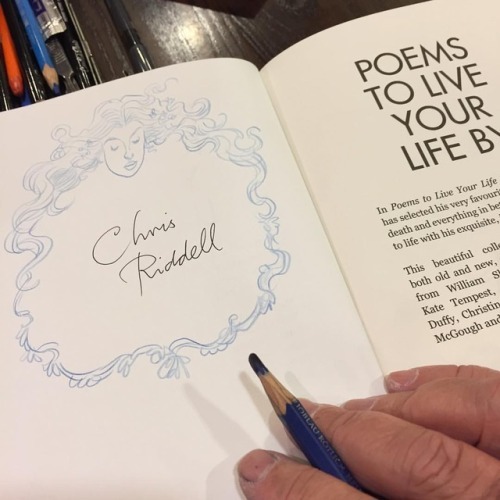 Chris
Riddell
POEMS
TO LIVE
YOUR
LIFE BY
In Poems to Live Your Life
has selected his very favouri
death and everything in be
to life with his exquisite,
This beautiful colle
both old and new,
from William Sh
Kate Tempest,
Duffy, Christin
McGough and